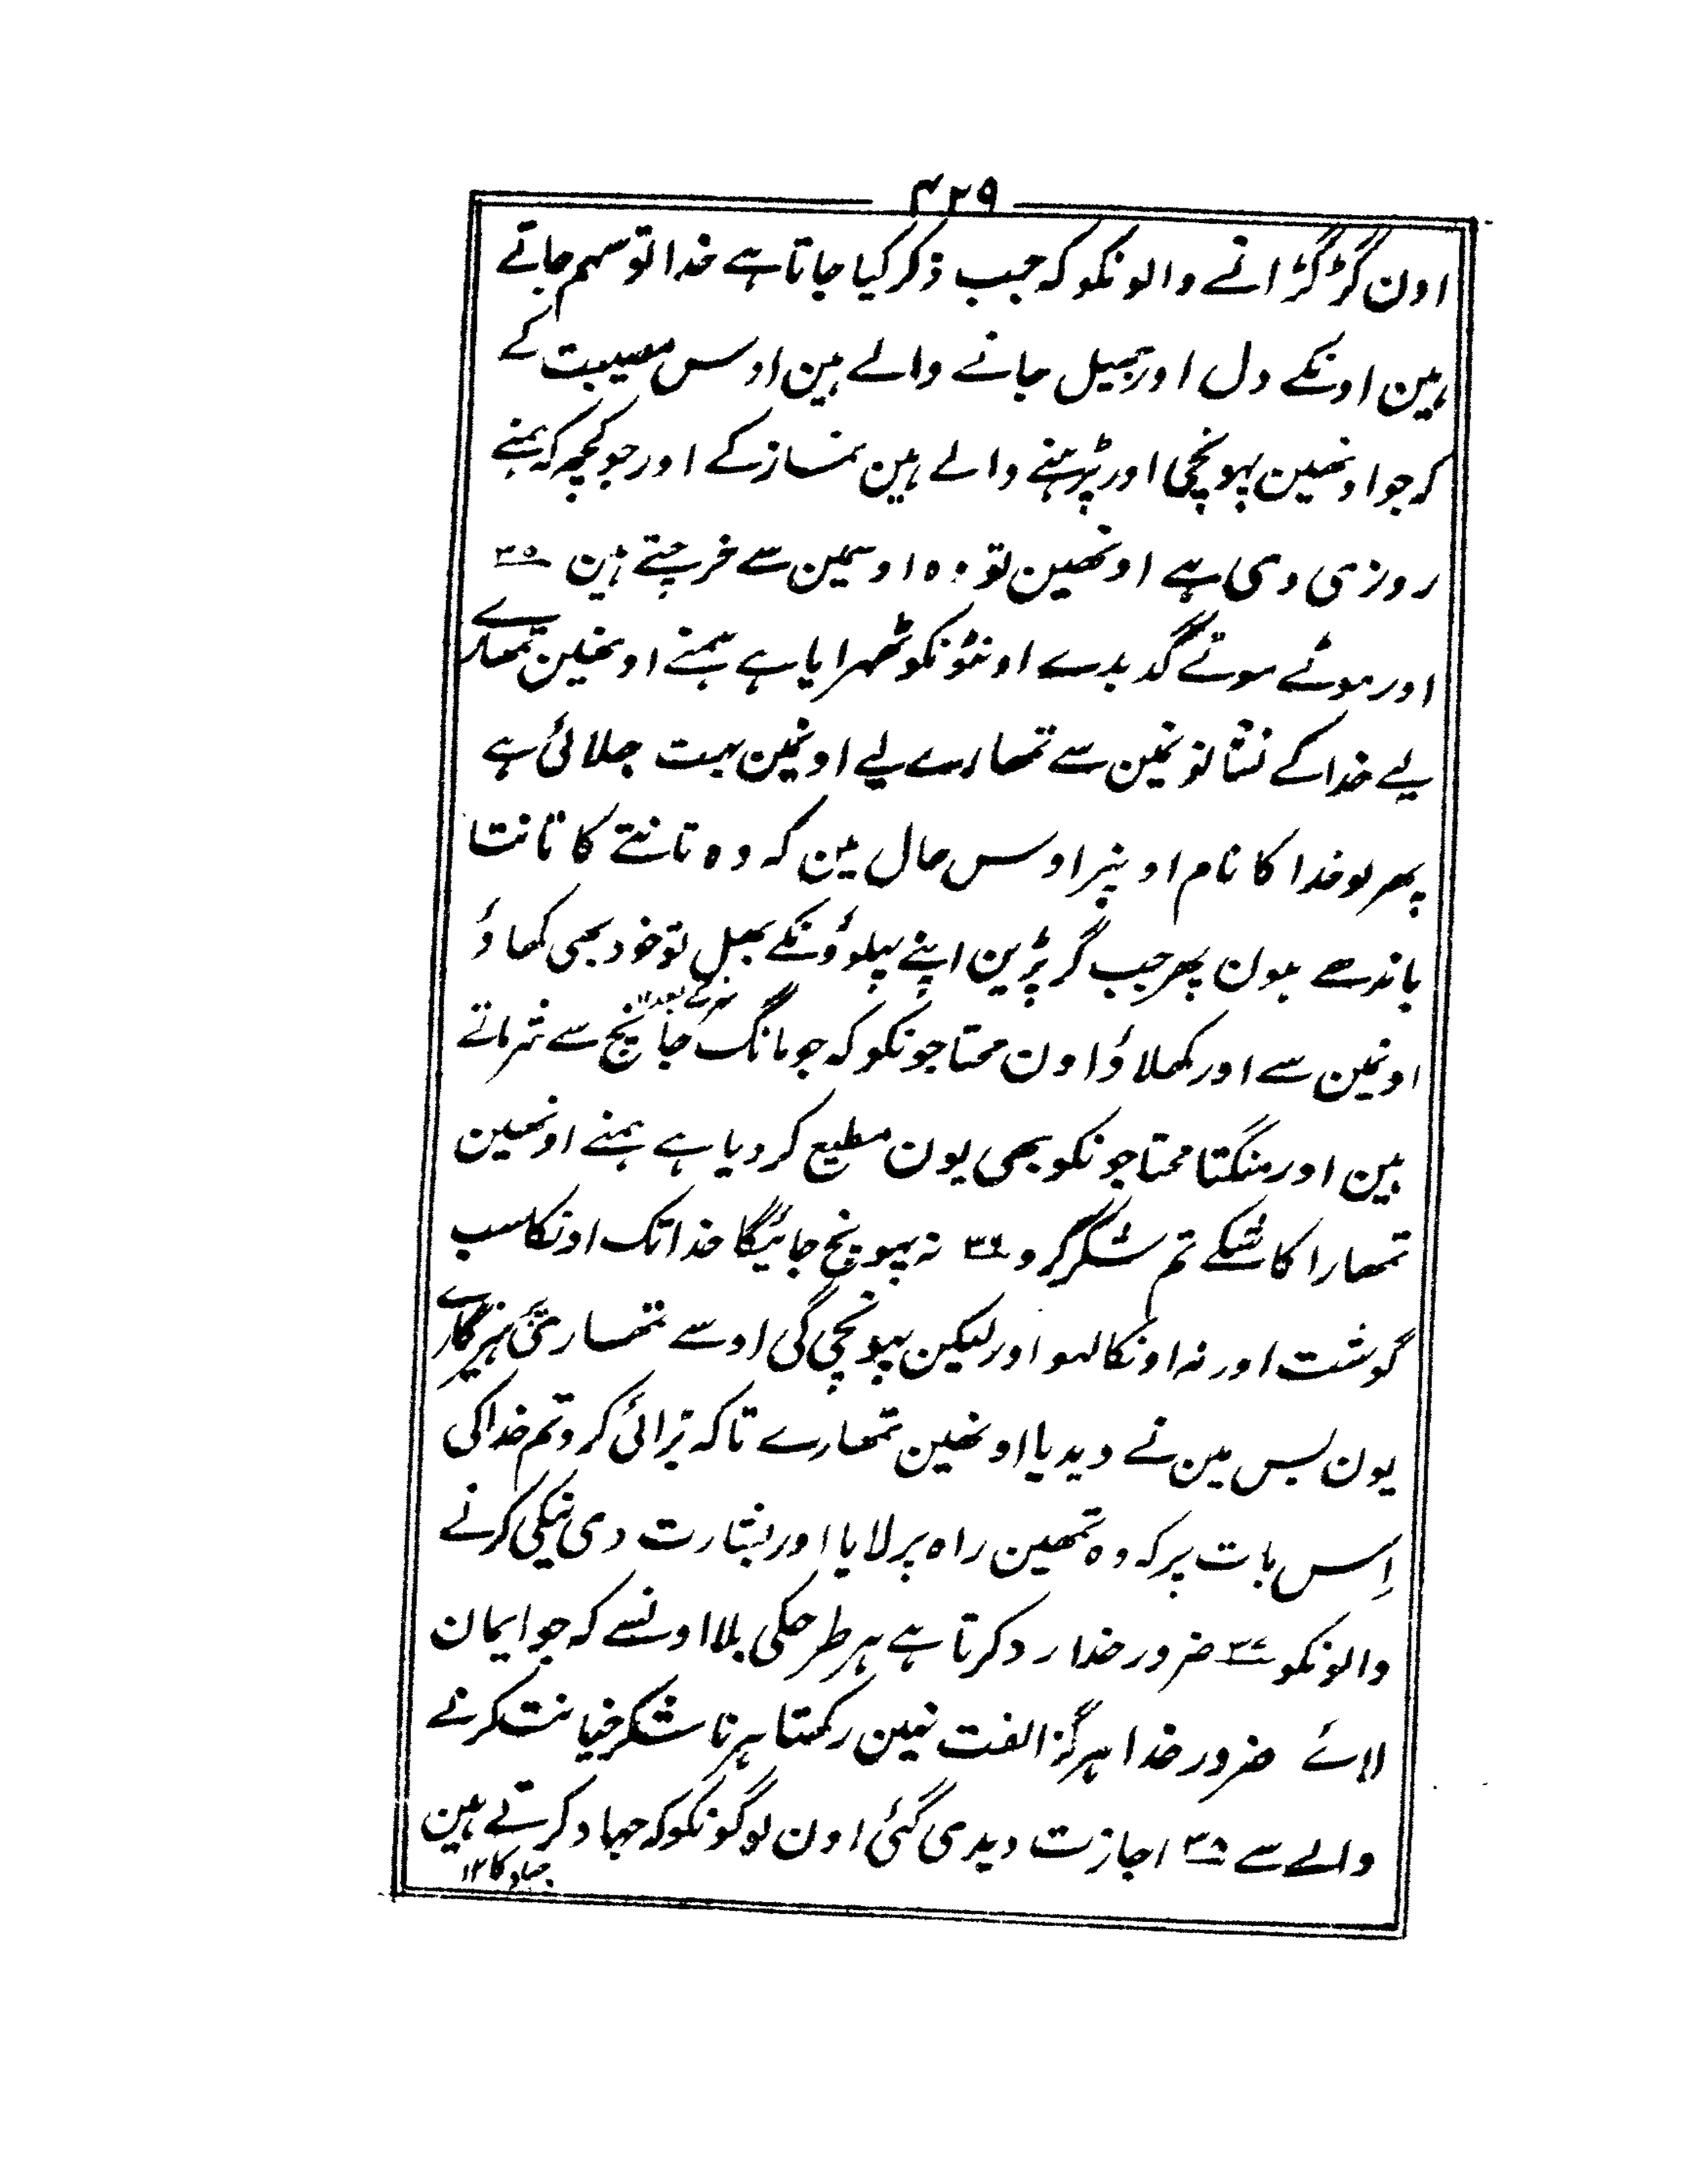 ۴۲۹
اون گڑگڑانے والونکو کہ جب ذکر کیا جاتا ہے خدا تو سہم جاتے
ہین اونکے دل اور جھیل جانے والے ہین اوس مصیبت کے
کہ جو اونھین پہونچی اور پڑہنے والے ہین نماز کے اور جو کچھ کہ ہمنے
روزی دی ہے اونھین تو وہ اوسمین سے خرچتے ہین ۳۵
اور موٹے موٹے گدبدے اونٹونکو ٹھہرایا ہے ہمنے اونھین تمھارے
لیے خدا کے نشانونمین سے تمھارے لیے اونمین بہت بھلائی ہے
پھر لو خدا کا نام اونپر اوس حال مین کہ وہ تانتے کا تانتا
باندھے ہون پھر جب گر پڑین اپنے پہلوؤنکے بھل تو خود بھی کھاؤ
اونمین سے اور کھلاؤ اون محتاجونکو کہ جو مانگ جانچ سے شرماتے
ہین اور منگتا محتاجونکو بھی یون مطیع کر دیا ہے ہمنے اونھین
تمھارا کاشکے تم شکر کرو ۳۶ نہ پہونچ جائیگا خدا تک اونکا سب
گوشت اور نہ اونکا لہو اور لیکن پہونچی گی اوسے تمھاری پرہیزگاری
یون بس مین نے دیدیا اونھین تمھارے تاکہ بڑائی کرو تم خدا کی
اِس بات پر کہ وہ تمھین راہ پر لایا اور بشارت دی نیکی کرنے
والونکو ۳۷ ضرور خدا رد کرتا ہے ہر طرحکی بلا اونسے کہ جو ایمان
لائے ضرور خدا ہرگز الفت نہین رکھتا ہر ناشکر خیانت کرنے
والے سے ۳۸ اجازت دیدی گئی اون لوگونکو کہ جہاد کرتے ہین
جہاد کا ۱۲